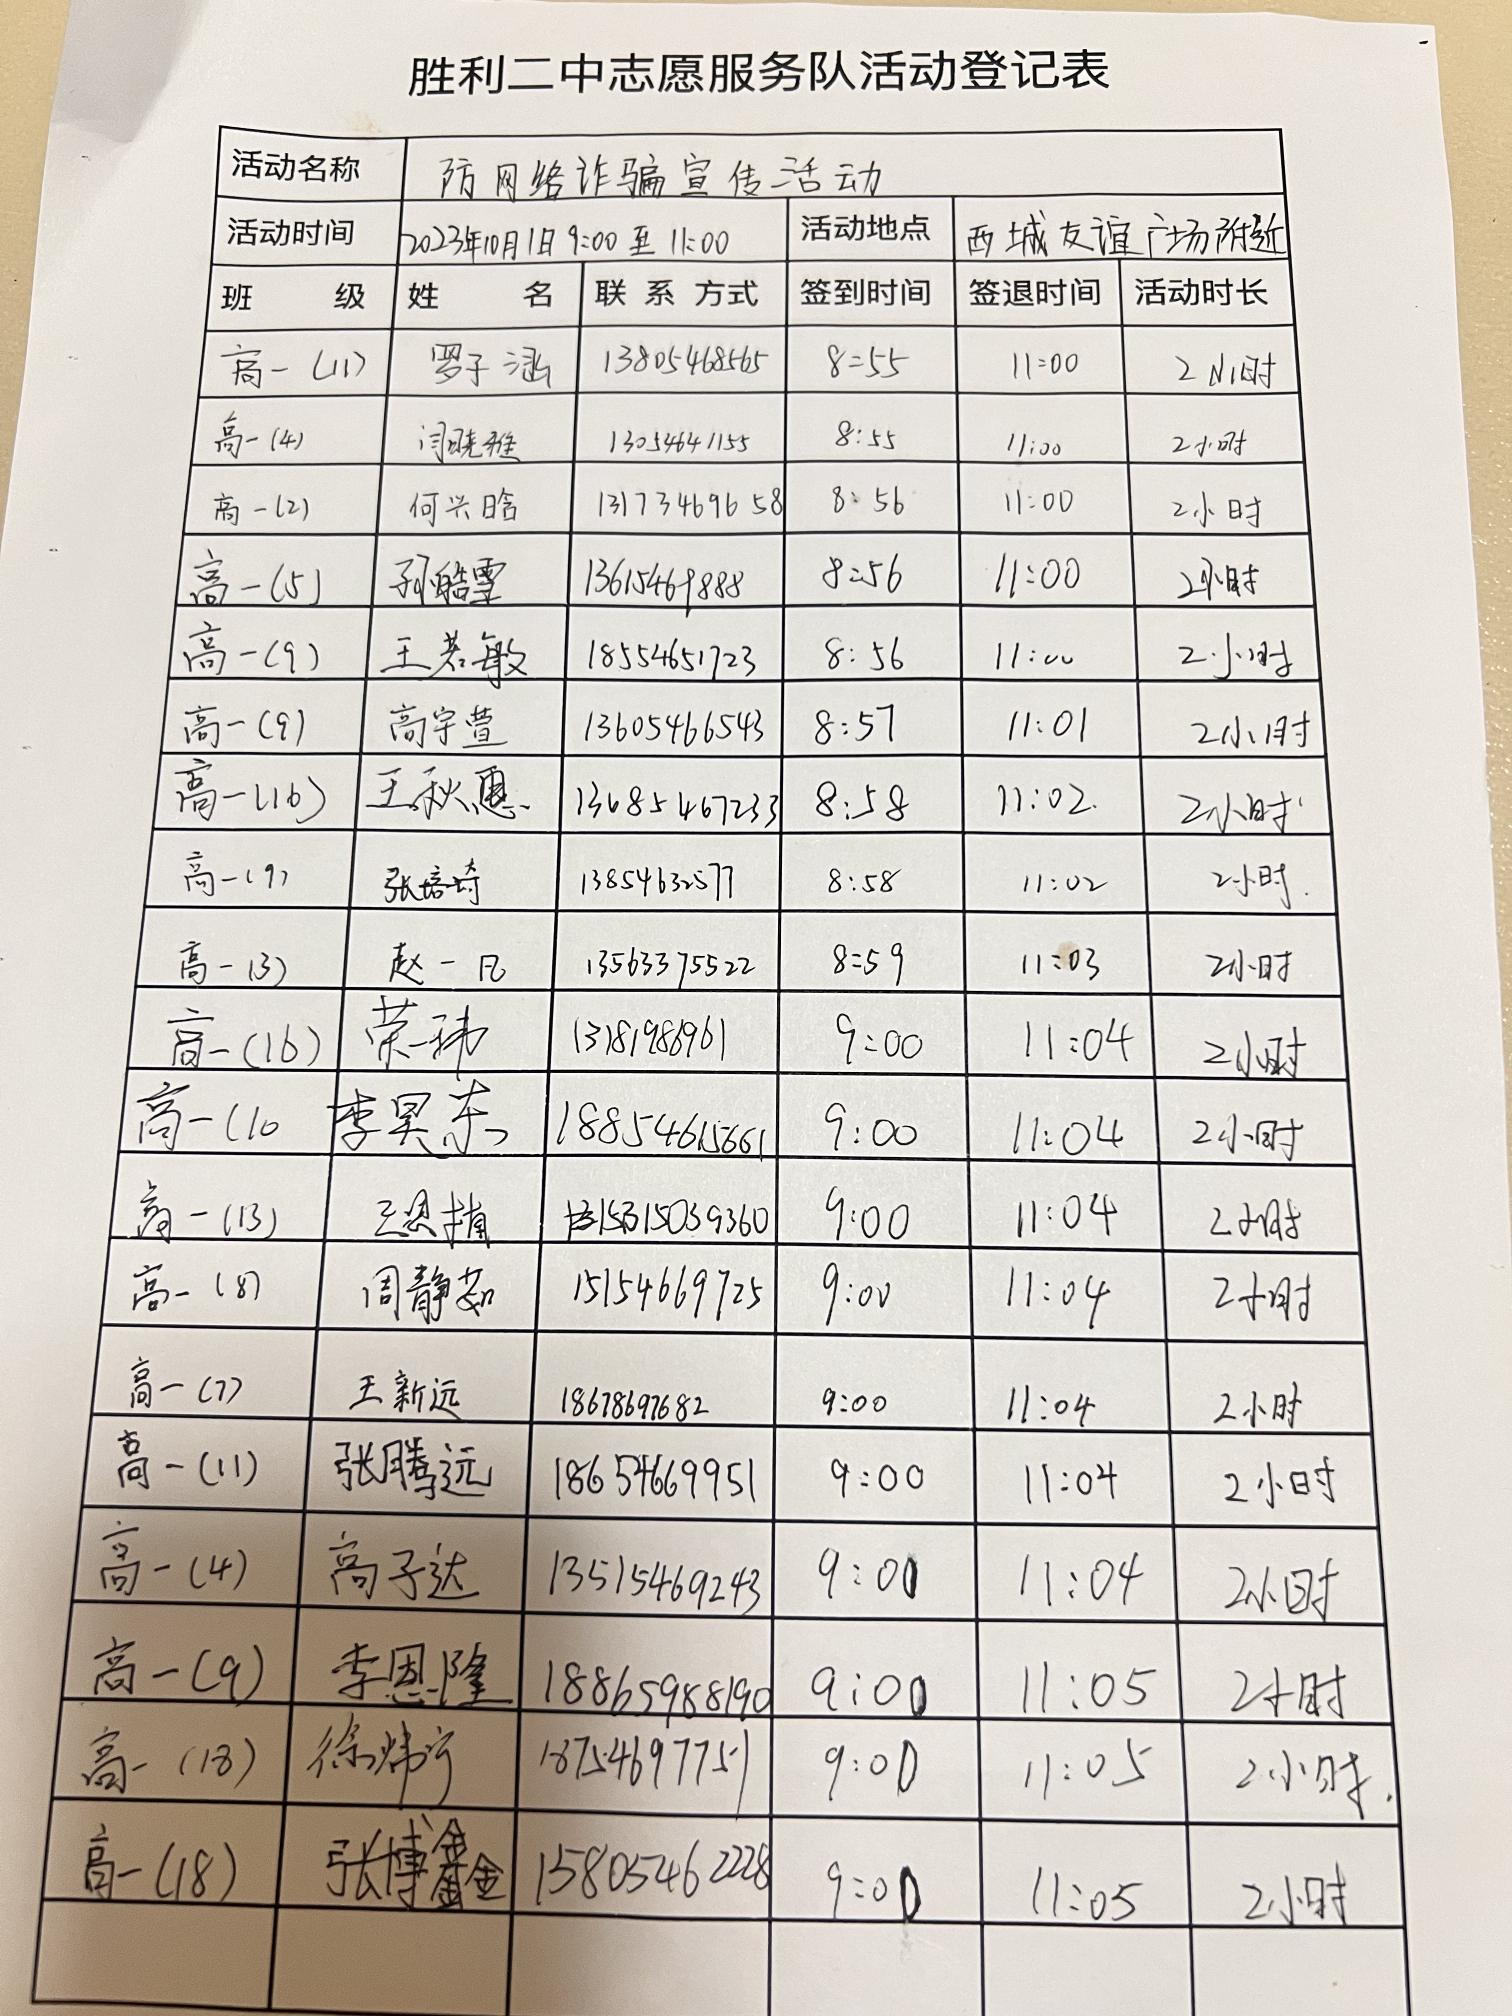 胜利二中志愿服务队活动登记表
活动名称 防网络诈骗宣传活动
活动时间 2023年10月1日 9:00 至 11:00 活动地点 西城友谊广场附近
班 级 姓 名 联 系 方式 签到时间 签退时间 活动时长
高一(11) 罗子涵 13805468565 8:55 11:00 2小时
高一(4) 闫晓雅 13054641155 8:55 11:00 2小时
高一(2) 何兴晗 13173469658 8:56 11:00 2小时
高一(5) 孙皓雪 13615469888 8:56 11:00 2小时
高一(9) 王若敏 18554651723 8:56 11:00 2小时
高一(9) 高宇萱 13605466543 8:57 11:01 2小时
高一(16) 王秋惠 13685467233 8:58 11:02 2小时
高一(9) 张培琦 13854632577 8:58 11:02 2小时
高一(3) 赵一凡 13563375522 8:59 11:03 2小时
高一(16) 荣一玮 13181986961 9:00 11:04 2小时
高一(10 李昊东 18854615661 9:00 11:04 2小时
高一(13) 王恩楠 9:00 11:04 2小时
高一(8) 周静茹 15154669725 9:00 11:04 2小时
高一(7) 王新远 18678697682 9:00 11:04 2小时
高一(11) 张腾远 18654669951 9:00 11:04 2小时
高一(4) 高子达 13515469243 9:00 11:04 2小时
高一(9) 李恩隆 18865988190 9:00 11:05 2小时
高一(18) 徐炜宁 18754697751 9:00 11:05 2小时
高一(18) 张博鑫 15805462228 9:00 11:05 2小时